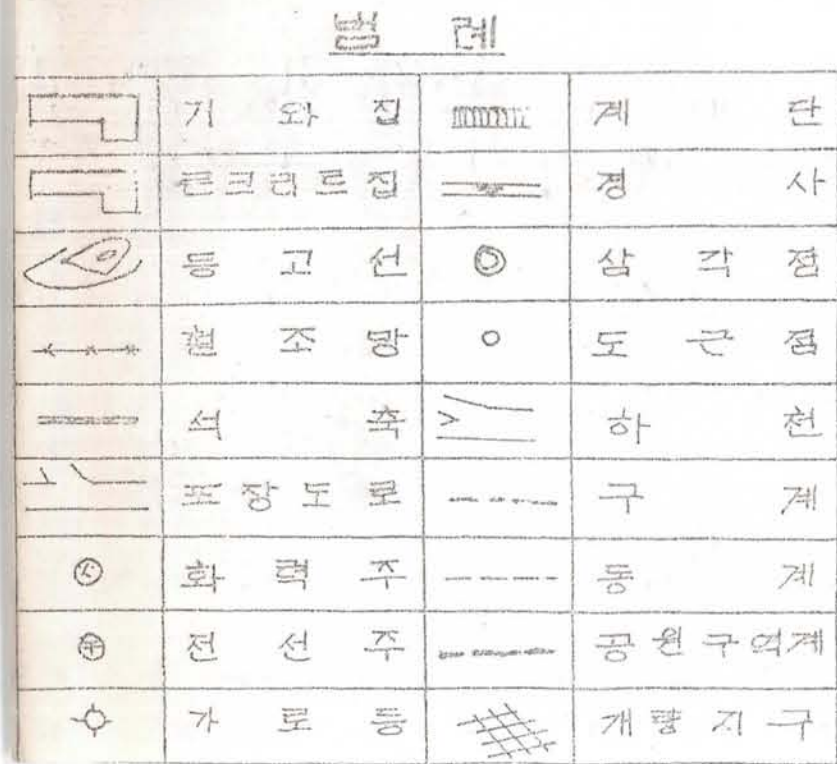 범 례
기 와 집 계 단
콘크리트집 경 사
등 고 선 삼 각 점
철 조 망 도 근 점
석 축 하 천
포 장 도 로 구 계
화 력 주 동 계
전 선 주 공 원 구 역 계
가 로 등 개 량 지 구